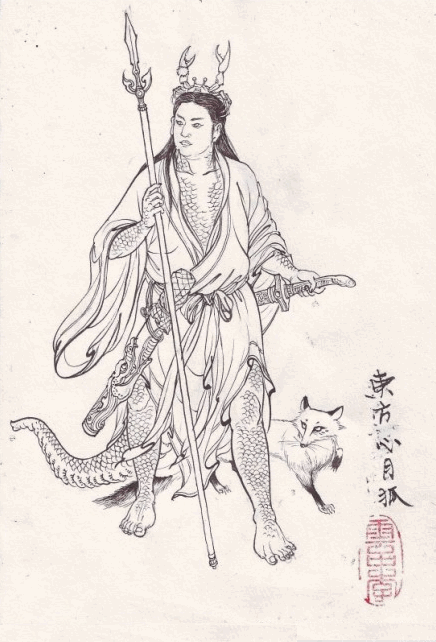 東方心月狐